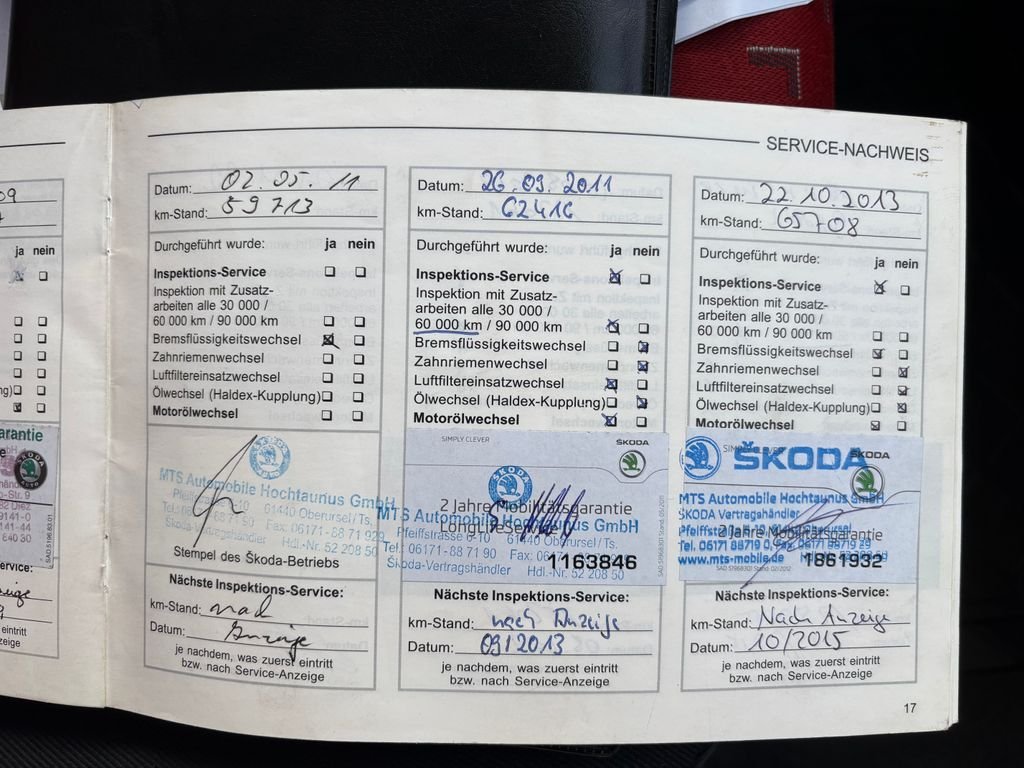 SERVICE-NACHWEIS
09
ja nein
Datum: 02.05.11
km-Stand: 59713
Durchgeführt wurde: ja nein
Inspektions-Service
Inspektion mit Zusatz-
arbeiten alle 30 000 /
60 000 km / 90 000 km
Bremsflüssigkeitswechsel
Zahnriemenwechsel
Luftfiltereinsatzwechsel
Ölwechsel (Haldex-Kupplung)
Motorölwechsel
MTS Automobile Hochtaunus GmbH
61440 Oberursel/Ts.
Fax: 06171-88 71 929
Skoda-Vertragshändler Hdl.-Nr. 52 208 50
Stempel des Škoda-Betriebs
Nächste Inspektions-Service:
km-Stand: nach
Datum: Anzeige
je nachdem, was zuerst eintritt
bzw. nach Service-Anzeige
Datum: 26.09.2011
km-Stand: 62416
Durchgeführt wurde: ja nein
Inspektions-Service
Inspektion mit Zusatz-
arbeiten alle 30 000 /
60 000 km / 90 000 km
Bremsflüssigkeitswechsel
Zahnriemenwechsel
Luftfiltereinsatzwechsel
Ölwechsel (Haldex-Kupplung)
Motorölwechsel
SIMPLY CLEVER
ŠKODA
2 Jahre Mobilitätsgarantie
MTS Automobile Hochtaunus GmbH
Pfeiffstraße 6-10 61440 Oberursel/Ts.
Tel.: 06171-88 71 90
1163846
Škoda-Vertragshändler Hdl.-Nr. 52 208 50
Nächste Inspektions-Service:
km-Stand: nach Anzeige
Datum: 09/2013
je nachdem, was zuerst eintritt
bzw. nach Service-Anzeige
Datum: 22.10.2013
km-Stand: 65708
Durchgeführt wurde: ja nein
Inspektions-Service
Inspektion mit Zusatz-
arbeiten alle 30 000 /
60 000 km / 90 000 km
Bremsflüssigkeitswechsel
Zahnriemenwechsel
Luftfiltereinsatzwechsel
Ölwechsel (Haldex-Kupplung)
Motorölwechsel
ŠKODA
MTS Automobile Hochtaunus GmbH
ŠKODA Vertragshändler
2 Jahre Mobilitätsgarantie
Tel. 06171 88719 0
www.mts-mobile.de
1861932
Nächste Inspektions-Service:
km-Stand: Nach Anzeige
Datum: 10/2015
je nachdem, was zuerst eintritt
bzw. nach Service-Anzeige
17